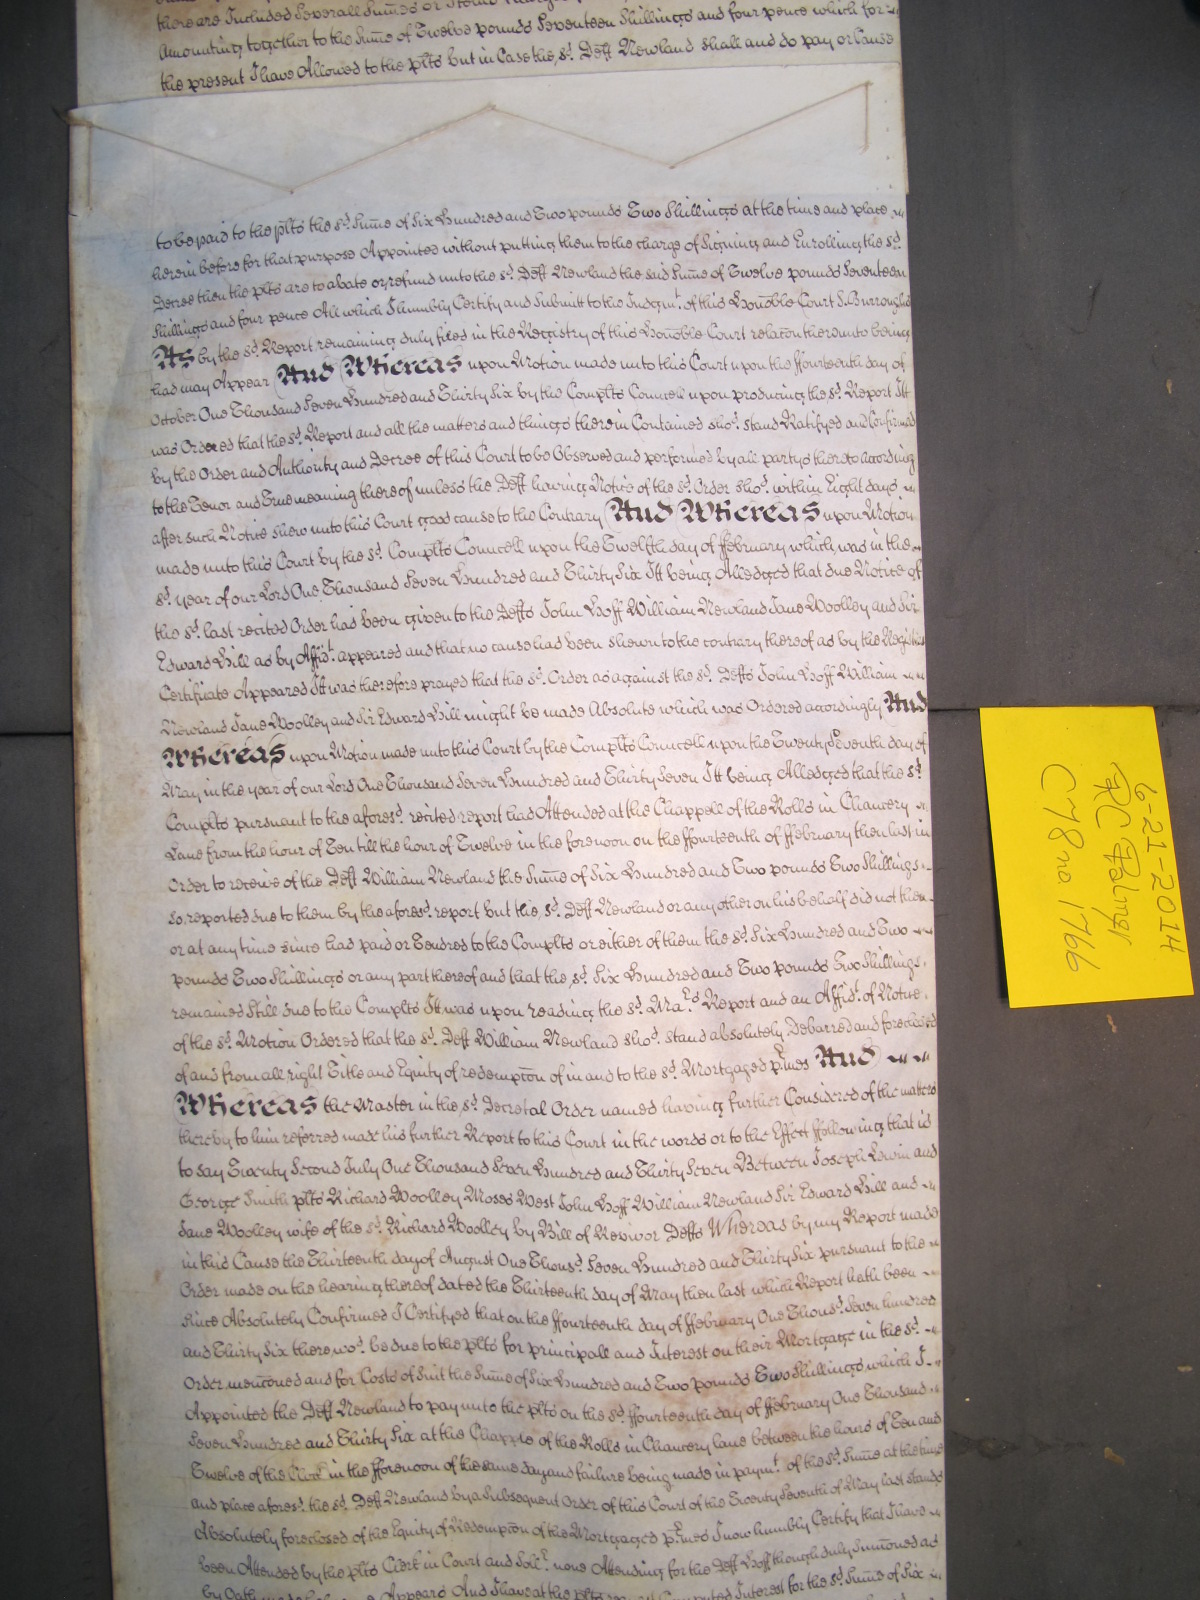 there are Included Severall Sumes or
Amounting together to the Sume of Twelve pounds Seventeen Shillings and four pence which for
the present I have Allowed to the plts but in Case the sd. Deft Newland shall and do pay or Cause
to be paid to the plts the sd. Sume of Six Hundred and Two pounds Two Shillings at the time and place
herein before for that purpose Appointed without putting them to the charge of Signing and Enrolling the sd.
Decree then the plts are to abate or refund unto the sd. Deft Newland the said Sume of Twelve pounds Seventeen
Shillings and four pence All which I humbly Certify and Submitt to the Judgmt. of this Honoble Court S. Burroughs
As by the sd. Report remaining duly filed in the Registry of this Honoble Court relacon thereunto being
had may Appear And Whereas upon Motion made unto this Court upon the ffourteenth day of
October One Thousand Seven Hundred and Thirty Six by the Complts Councell upon producing the sd. Report Itt
was Ordered that the sd. Report and all the matters and things therein Contained shod. stand Ratifyed and Confirmed
by the Order and Authority and Decree of this Court to be Observed and performed by all partys thereto according
to the Tenor and True meaning thereof unless the Deft having Notice of the sd. Order shod. within Eight days
after such Notice shew unto this Court good cause to the Contrary And Whereas upon Motion
made unto this Court by the sd. Complts Councell upon the Twelfth day of ffebruary which was in the
sd. year of our Lord One Thousand Seven Hundred and Thirty Six Itt being Alledged that due Notice of
the sd. last recited Order had been given to the Defts John Hoff William Newland Jane Woolley and Sir
Edward Hill as by Affidt. appeared and that no cause had been shewn to the contrary thereof as by the Registers
Certificate Appeared It was therefore prayed that the sd. Order as against the sd. Defts John Hoff William
Newland Jane Woolley and Sir Edward Hill might be made Absolute which was Ordered accordingly And
Whereas upon Motion made unto this Court by the Complts Councell upon the Twenty Seventh day of
May in the year of our Lord One Thousand Seven Hundred and Thirty Seven Itt being Alledged that the sd.
Complts pursuant to the aforesd. recited report had Attended at the Chappell of the Rolls in Chancery
Lane from the hour of Ten till the hour of Twelve in the forenoon on the ffourteenth of ffebruary then last in
Order to receive of the Deft William Newland the Sume of Six Hundred and Two pounds Two Shillings
so reported due to them by the aforesd. report but the sd. Deft Newland or any other on his behalf did not then
or at any time since had paid or Tendred to the Complts or either of them the sd. Six Hundred and Two
pounds Two Shillings or any part thereof and that the sd. Six Hundred and Two pounds Two Shillings
remained still due to the Complts It was upon reading the sd. Mars. Report and an Affidt. of Notice
of the sd. Motion Ordered that the sd. Deft William Newland shod. stand absolutely Debarred and foreclosed
of and from all right Title and Equity of redempcon of in and to the sd. Mortgaged pmes And
Whereas the Master in the sd. Decretal Order named having further Considered of the matters
thereby to him referred made his further Report to this Court in the words or to the Effect ffollowing that is
to say Twenty Second July One Thousand Seven Hundred and Thirty Seven Between Joseph Lewin and
George Smith plts Richard Woolley Moses West John Hoff William Newland Sir Edward Hill and
Jane Woolley wife of the sd. Richard Woolley by Bill of Revivor Defts Whereas by my Report made
in this Cause the Thirteenth day of August One Thousd. Seven Hundred and Thirty Six pursuant to the
Order made on the hearing thereof dated the Thirteenth day of May then last which Report hath been
since Absolutely Confirmed I Certifyed that on the ffourteenth day of ffebruary One Thousd. Seven hundred
and Thirty Six there wod. be due to the plts for principall and Interest on their Mortgage in the sd.
Order mencioned and for Costs of Suit the Sume of Six Hundred and Two pounds Two Shillings which I
Appointed the Deft Newland to pay unto the plts on the sd. ffourteenth day of ffebruary One Thousand
Seven Hundred and Thirty Six at the Chapple of the Rolls in Chancery lane between the hours of Ten and
Twelve of the Clock in the fforenoon of the same day and failure being made in paymt. of the sd. Sume at the time
and place aforesd. the sd. Deft Newland by a Subsequent Order of this Court of the Twenty Seventh of May last stands
Absolutely foreclosed of the Equity of Redempcon of the Mortgaged pmes I now humbly Certify that I have
been Attended by the plts Clerk in Court and Sollr. none Attending for the Deft Hoff though duly Summoned as
by Oath made Appears And I have at the plts Computed Interest for the sd. Sume of Six
6-21-2014
RC Palmer
C78 no. 1766